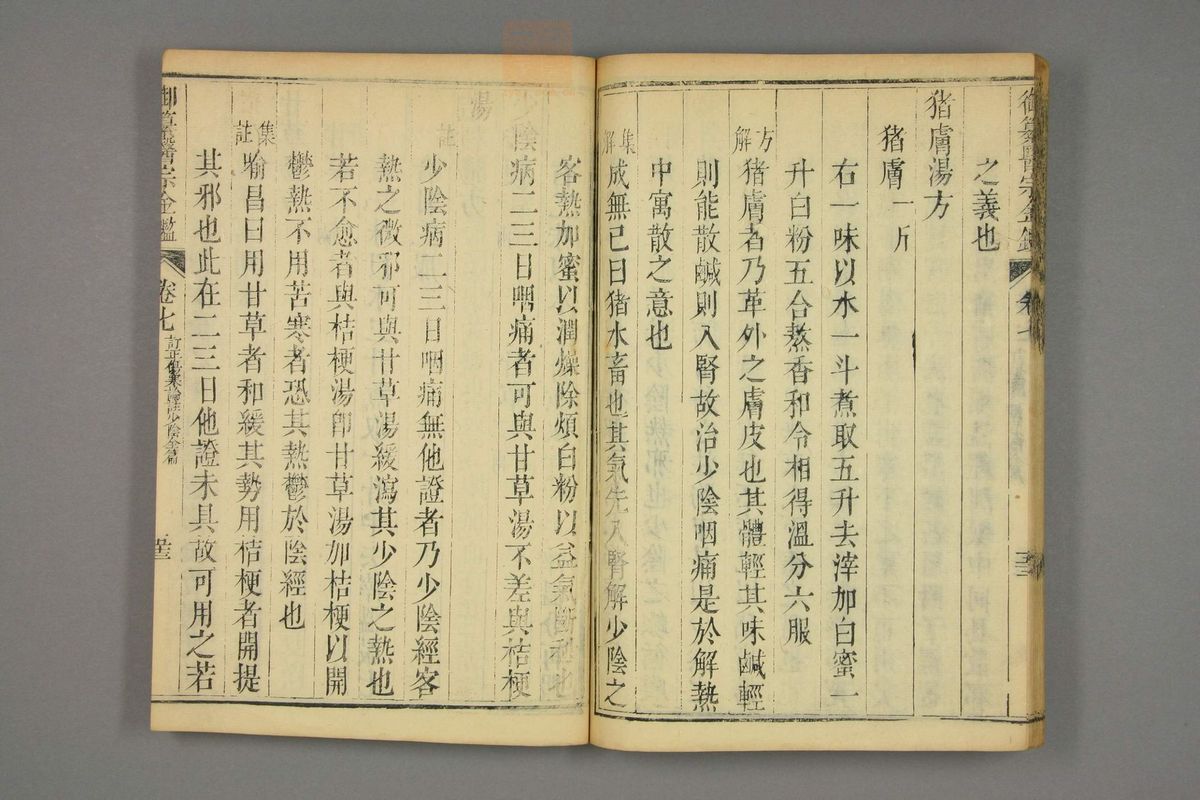 之義也
猪膚湯方
猪膚一斤
右一味以水一斗煮取五升去滓加白蜜一
升白粉五合熬香和令相得溫分六服
方解 猪膚者乃革外之膚皮也其體輕其味鹹輕
則能散鹹則入腎故治少陰咽痛是於解熱
中寓散之意也
集解 成無已曰猪水畜也其氣先入腎解少陰之
客熱加蜜以潤燥除煩白粉以益氣斷利也
少陰病二三日咽痛者可與甘草湯不差與桔梗
湯
註 少陰病二三日咽痛無他證者乃少陰經客
熱之微邪可與甘草湯緩瀉其少陰之熱也
若不愈者與桔梗湯卽甘草湯加桔梗以開
鬱熱不用苦寒者恐其熱鬱於陰經也
集註 喻昌曰用甘草者和緩其勢用桔梗者開提
其邪也此在二三日他證未具故可用之若
御纂醫宗金鑑 卷七